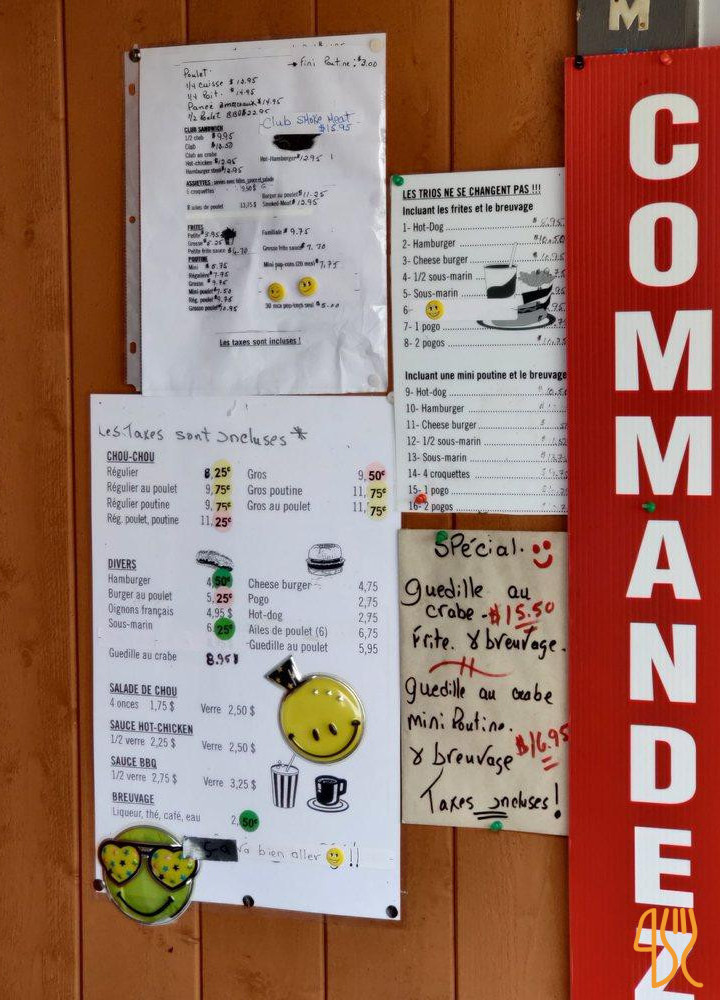 M
COMMANDEZ
→ Fini Poutine: $2.00
Poulet
1/4 cuisse $12.95
1/4 Poit. $14.95
Panée 2 morceaux $14.95
1/2 Poulet BBQ $22.95
Club Smoke Meat
$15.95
CLUB SANDWICH
1/2 club $9.95
Club
Club au crabe
Hot-chicken $12.95
Hamburger steak $12.95
Hot-Hamburger $12.95
ASSIETTES
6 croquettes 9,50 $
8 ailes de poulet 11,75 $
Burger au poulet $11.25
Smoked-Meat $12.95
FRITES
Petite $3.95
Grosse $5.25
Petite frite sauce $4.70
Familiale $9.75
Grosse frite sauce $7.70
POUTINE
Mini $6.75
Régulière $7.95
Grosse $9.75
Mini poulet $7.50
Rég. poulet $9.75
Grosse poulet $10.95
Mini pop-corn (20 mcx) $7.75
30 mcx pop-corn seul $5.00
Les taxes sont incluses !
LES TRIOS NE SE CHANGENT PAS !!!
Incluant les frites et le breuvage
1- Hot-Dog
2- Hamburger
3- Cheese burger
4- 1/2 sous-marin
5- Sous-marin
6-
7- 1 pogo
8- 2 pogos
Incluant une mini poutine et le breuvage
9- Hot-dog
10- Hamburger
11- Cheese burger
12- 1/2 sous-marin
13- Sous-marin
14- 4 croquettes
15- 1 pogo
16- 2 pogos
Les Taxes sont incluses *
CHOU-CHOU
Régulier 8,25¢ Gros 9,50¢
Régulier au poulet 9,75¢ Gros poutine 11,75¢
Régulier poutine 9,75¢ Gros au poulet 11,75¢
Rég. poulet, poutine 11,25¢
DIVERS
Hamburger 4,50¢ Cheese burger 4,75
Burger au poulet 5,25¢ Pogo 2,75
Oignons français 4,95 $ Hot-dog 2,75
Sous-marin 6,25¢ Ailes de poulet (6) 6,75
Guedille au poulet 5,95
Guedille au crabe 8.95$
SALADE DE CHOU
4 onces 1,75 $ Verre 2,50 $
SAUCE HOT-CHICKEN
1/2 verre 2,25 $ Verre 2,50 $
SAUCE BBQ
1/2 verre 2,75 $ Verre 3,25 $
BREUVAGE
Liqueur, thé, café, eau 2,50¢
va bien aller !!
Spécial.
guedille au
crabe - $15.50
Frite. & breuvage.
guedille au crabe
mini Poutine.
& breuvage $16.95
Taxes incluses!